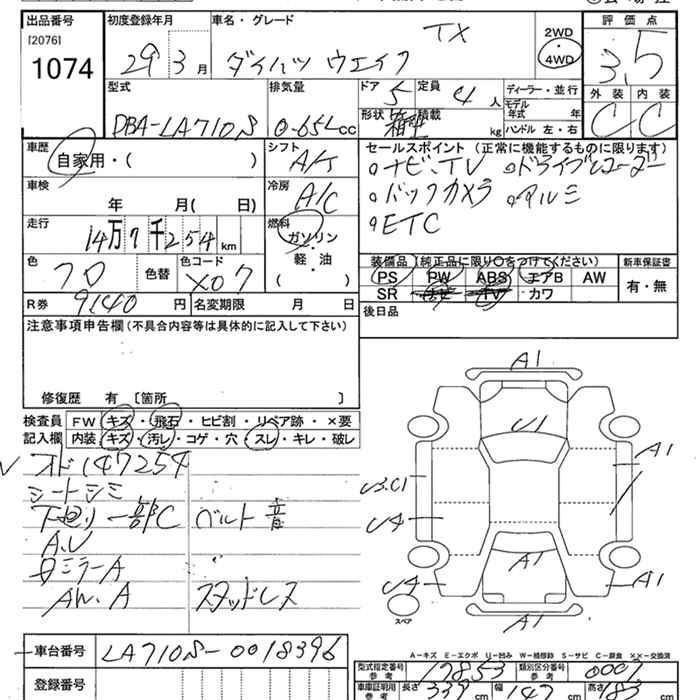 出品番号
[2076]
1074
初度登録年月
29年 3月
車名・グレード
TX
ダイハツ ウエイク
2WD
・
4WD
評価点
3.5
外装 内装
C C
型式
DBA-LA710S
排気量
0-65L CC
ドア 5
定員 4人
形状 箱型
積載 kg
ディーラー・並行
モデル年式 年
ハンドル 左・右
車歴
自家用・( )
シフト
A/T
車検
年 月( 日)
冷房
A/C
走行
14万7千254 km
燃料
ガソリン
・
軽・油
( )
色
クロ
色替
色コード
X07
R券 9140 円
名変期限 月 日
セールスポイント (正常に機能するものに限ります)
○ナビ、TV ○ドライブレコーダー
○バックカメラ ○アルミ
○ETC
装備品 (純正品に限り○をつけてください)
PS PW ABS エアB AW
SR ナビ TV カワ
新車保証書
有・無
後日品
注意事項申告欄 (不具合内容等は具体的に記入して下さい)
修復歴 有 〔箇所 〕
検査員 FW キズ・飛石・ヒビ割・リペア跡・×要
記入欄 内装 キズ・汚レ・コゲ・穴・スレ・キレ・破レ
オド147254
シートシミ
下廻リ一部C ベルト音
A.U
日ミラーA
AW.A スタッドレス
A1
U1
A1
U3.C1
U4
A1
U4
A1
A1
スペア
A-キズ E-エクボ U-凹み W-補修跡 S-サビ C-腐食 ××-交換済
車台番号 LA710S-0018396
登録番号
型式指定番号 参考 17853
類別区分番号 参考 0007
車庫証明用 参考 長さ 339 cm 幅 147 cm 高さ 183 cm